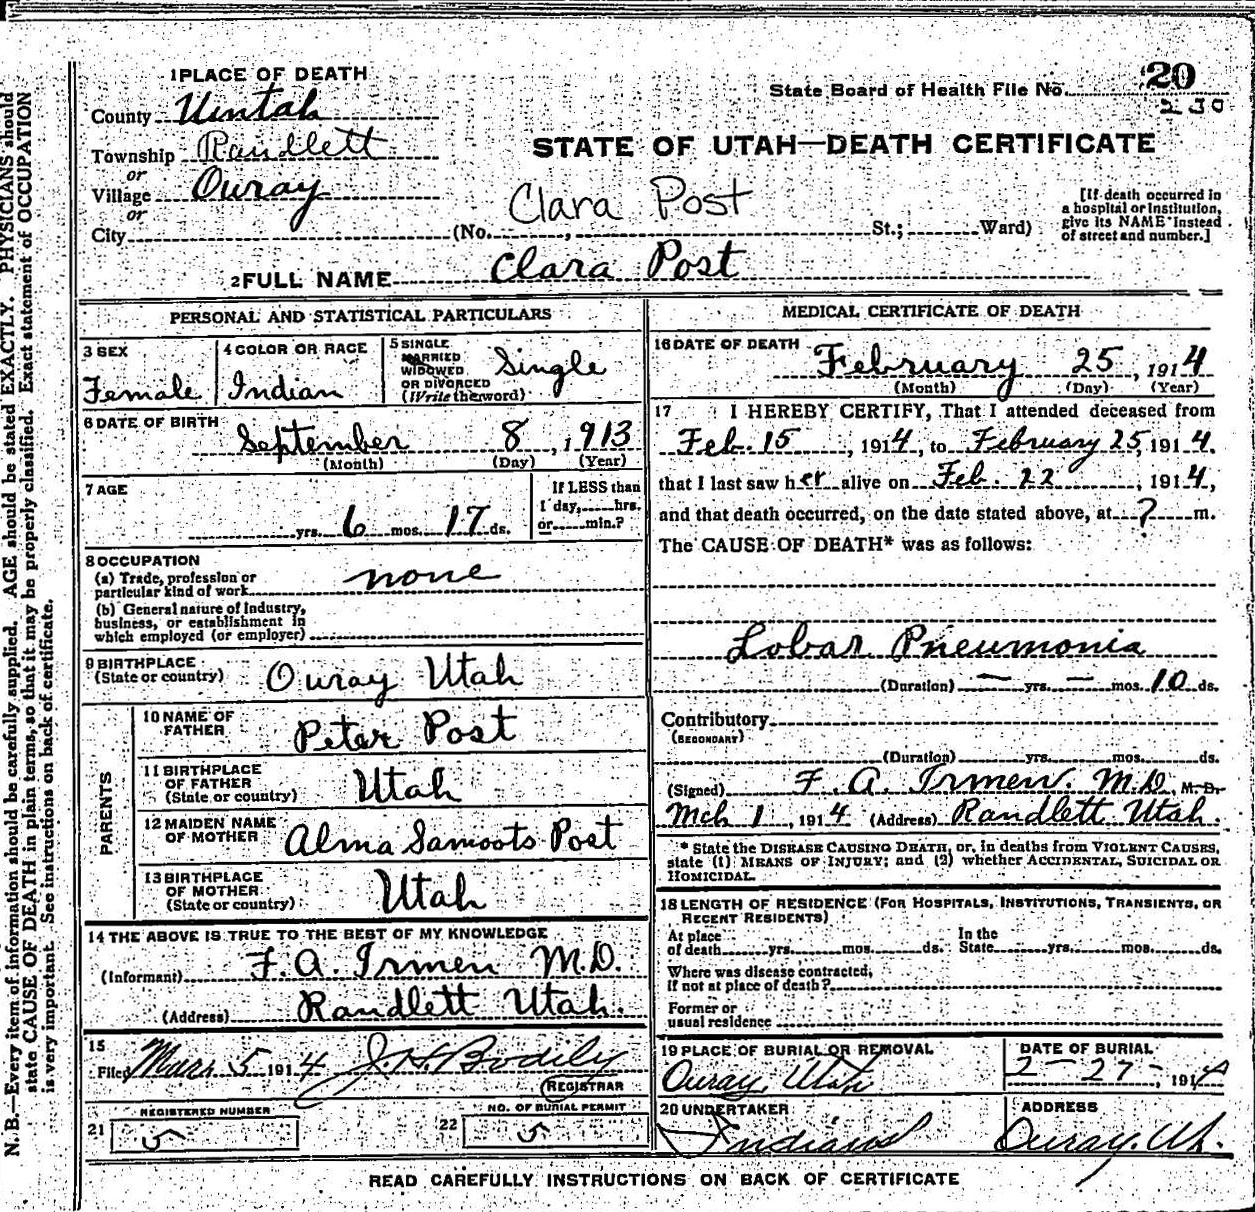 1 PLACE OF DEATH
County Uintah
Township Randlett
or
Village Ouray
or
City (No. , St.; Ward)
Clara Post
State Board of Health File No. 20
230
STATE OF UTAH—DEATH CERTIFICATE
[If death occurred in
a hospital or institution,
give its NAME instead
of street and number.]
2 FULL NAME Clara Post
PERSONAL AND STATISTICAL PARTICULARS
3 SEX
Female
4 COLOR OR RACE
Indian
5 SINGLE
MARRIED
WIDOWED
OR DIVORCED
(Write the word)
Single
6 DATE OF BIRTH
September 8, 1913
(Month) (Day) (Year)
7 AGE
yrs. 6 mos. 17 ds.
If LESS than
1 day, hrs.
or min.?
8 OCCUPATION
(a) Trade, profession or
particular kind of work none
(b) General nature of Industry,
business, or establishment in
which employed (or employer)
9 BIRTHPLACE
(State or country) Ouray Utah
PARENTS
10 NAME OF
FATHER Peter Post
11 BIRTHPLACE
OF FATHER
(State or country) Utah
12 MAIDEN NAME
OF MOTHER Alma Samoots Post
13 BIRTHPLACE
OF MOTHER
(State or country) Utah
14 THE ABOVE IS TRUE TO THE BEST OF MY KNOWLEDGE
(Informant) F. A. Irmen M.D.
(Address) Randlett Utah.
15
Filed Mar. 5 1914 J. H. Bodily
REGISTRAR
21 REGISTERED NUMBER
5
22 NO. OF BURIAL PERMIT
5
MEDICAL CERTIFICATE OF DEATH
16 DATE OF DEATH
February 25, 1914
(Month) (Day) (Year)
17 I HEREBY CERTIFY, That I attended deceased from
Feb. 15, 1914, to February 25, 1914.
that I last saw her alive on Feb. 22, 1914,
and that death occurred, on the date stated above, at ? m.
The CAUSE OF DEATH* was as follows:
Lobar Pneumonia
(Duration) — yrs. — mos. 10 ds.
Contributory
(SECONDARY)
(Duration) yrs. mos. ds.
(Signed) F. A. Irmen. M.D., M. D.
Mch 1, 1914 (Address) Randlett Utah.
* State the DISEASE CAUSING DEATH, or, in deaths from VIOLENT CAUSES,
state (1) MEANS OF INJURY; and (2) whether ACCIDENTAL, SUICIDAL OR
HOMICIDAL.
18 LENGTH OF RESIDENCE (FOR HOSPITALS, INSTITUTIONS, TRANSIENTS, OR
RECENT RESIDENTS)
At place
of death yrs. mos. ds.
In the
State yrs. mos. ds.
Where was disease contracted,
If not at place of death?
Former or
usual residence
19 PLACE OF BURIAL OR REMOVAL
Ouray, Utah
DATE OF BURIAL
2-27-, 1914
20 UNDERTAKER
Indians
ADDRESS
Ouray, Ut.
READ CAREFULLY INSTRUCTIONS ON BACK OF CERTIFICATE
N. B.—Every item of information should be carefully supplied. AGE should be stated EXACTLY. PHYSICIANS should
state CAUSE OF DEATH in plain terms, so that it may be properly classified. Exact statement of OCCUPATION
is very important. See instructions on back of certificate.